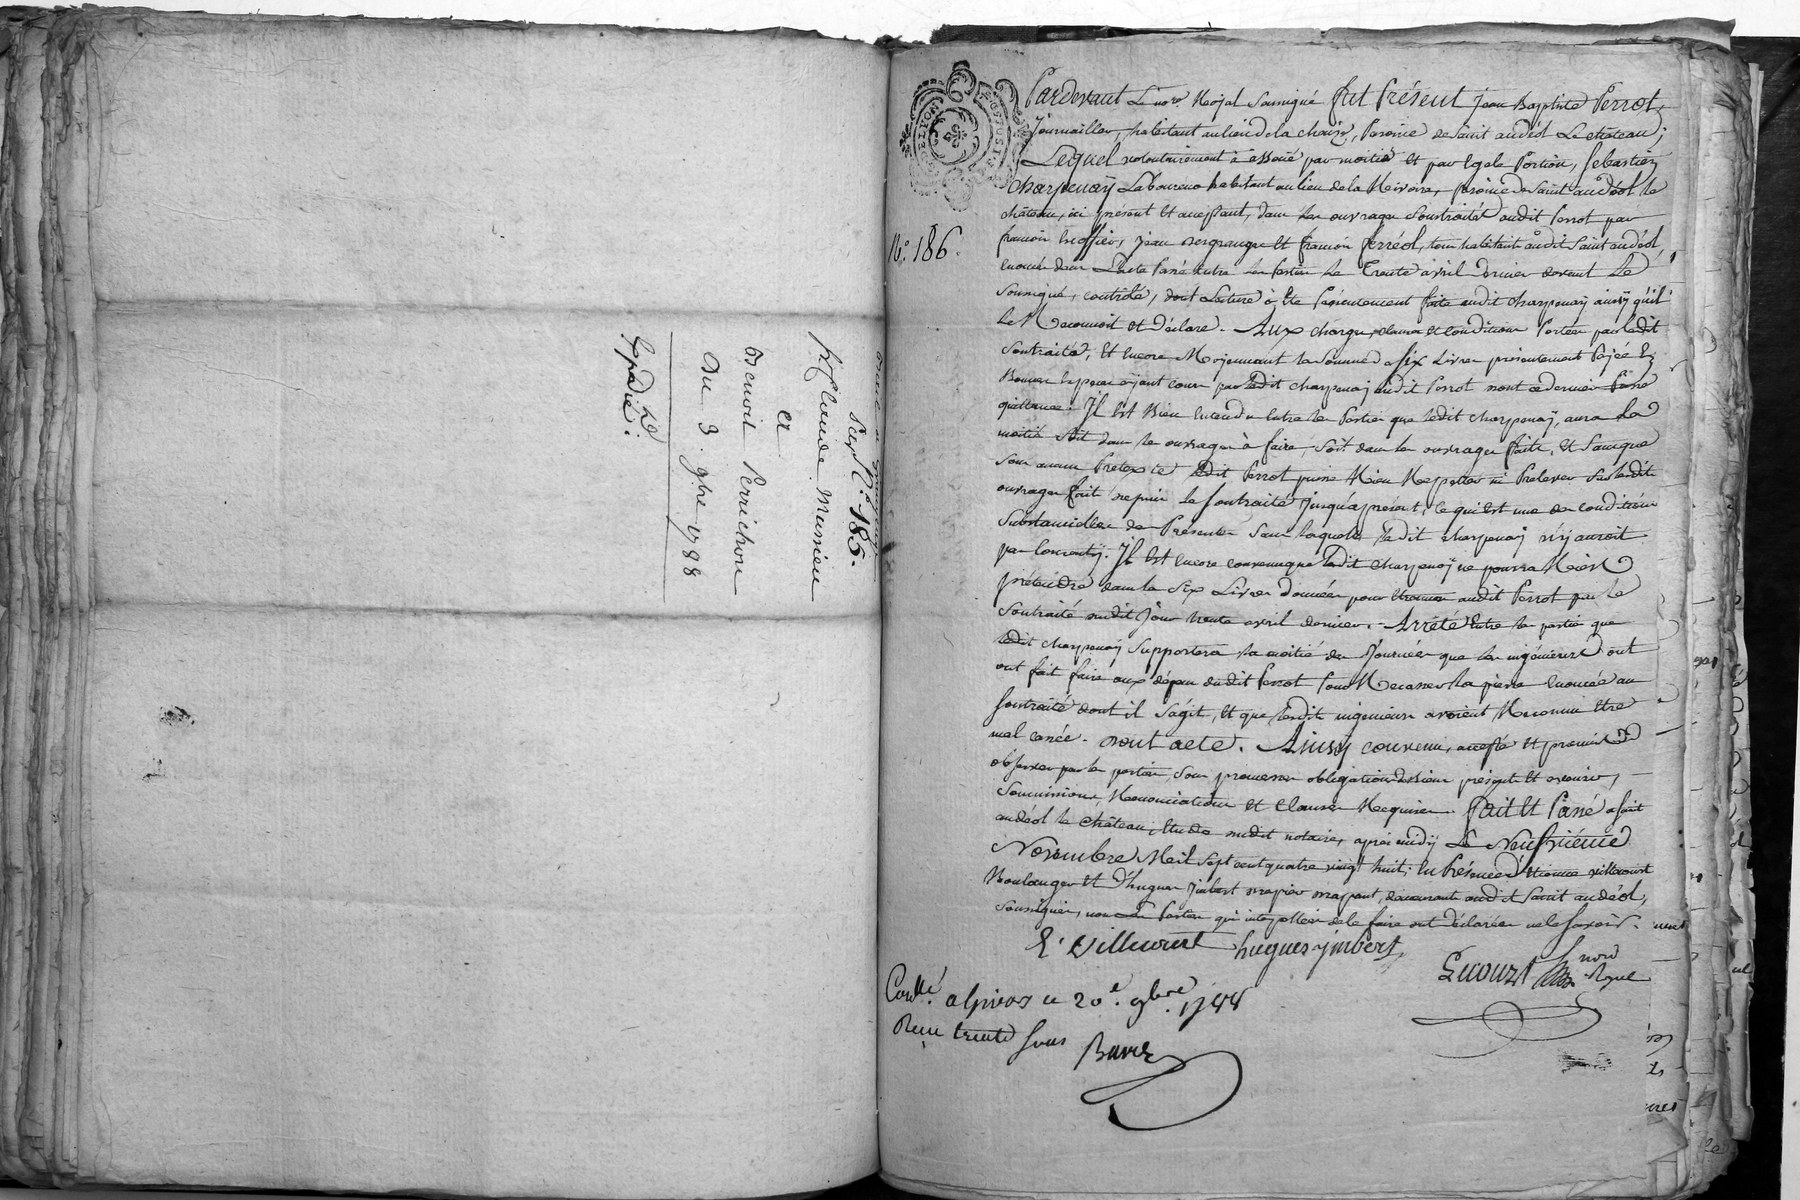 N.° 185.
hyclaude Meissieu
et
Benoit Perrichon
Du 3. 9bre 1788
Expedié.
N.° 186.
Pardevant Le nore Royal Soussigné fut Présent jean Baptiste Perrot,
Journaillier, habitant au lieu de la chaux, Paroisse de Saint andéol Le château;
Lequel volontairement à associé par moitié et par Egale Portion, Sebastien
Charpenaÿ Laboureur habitant au lieu de la Rivoire, paroisse de Saint andéol le
château, ici présent et acceptant, dans les ouvrages Soustraités audit Perrot par
françois jean et françois ferréol, tous habitant audit Saint andéol,
Enoncés dans L'acte Passé Entre les Parties Le Trente avril dernier devant Le
Soussigné, controlé, dont Lecture à Eté Présentement faite audit charpenaÿ ainsy qu'il
Le Reconnoit et déclare. Aux charges, clauses et conditions Portées par ledit
Soutraité, Et Encore Moyennant la Somme de Six Livres présentement Payée En
Bonnes Especes ayant cours par ledit charpenaÿ audit Perrot dont ce dernier Passe
quittance. Il Est Bien Entendu Entre les Parties que ledit charpenaÿ, aura La
moitié Soit dans les ouvrages à faire, Soit dans les ouvrages faits, Et Sans que
Sous aucun Pretexte ledit Perrot puisse Rien Repetter ni Prelever Sur lesdits
ouvrages faits depuis le Soutraité Jusqu'à présent, Ce qui Est une des conditions
Substancielles des Présentes Sans laquelle ledit charpenaÿ n'y auroit
pas Consenty. Il Est Encore convenu que ledit charpenaÿ ne pourra Rien
prétendre dans les Six Livres données pour audit Perrot par le
Soutraité audit Jour trente avril dernier. Arrété Entre les parties que
ledit charpenaÿ Supportera la moitié des Journées que les ingénieurs ont
ont fait faire aux dépens dudit Perrot Pour Recasser la pierre Enoncée au
Soutraité dont il S'agit, Et que lesdits ingenieurs avoient Reconnu Etre
mal cassée. Dont acte. Ainsy convenu, accepté Et promis
observer par les parties, Sous promesses obligations de Biens présents Et avenirs,
Soumissions, Renonciations Et Clauses Requises. Fait Et Passé a Saint
andéol le château, Etude dudit notaire, après midÿ Le Neufvieme
Novembre Mil Sept cent quatre vingt huit; En Présence d'Etienne villecourt
Boulanger Et d'hugues jmbert demeurants audit Saint andéol,
Soussignés, non Les Parties qui interpellées de le faire ont déclarées ne le Savoir.
E. villecourt hugues jmbert,
nore Royal
Conlé. a Givors ce 20e. 9bre. 1788
Reçu trente Sous